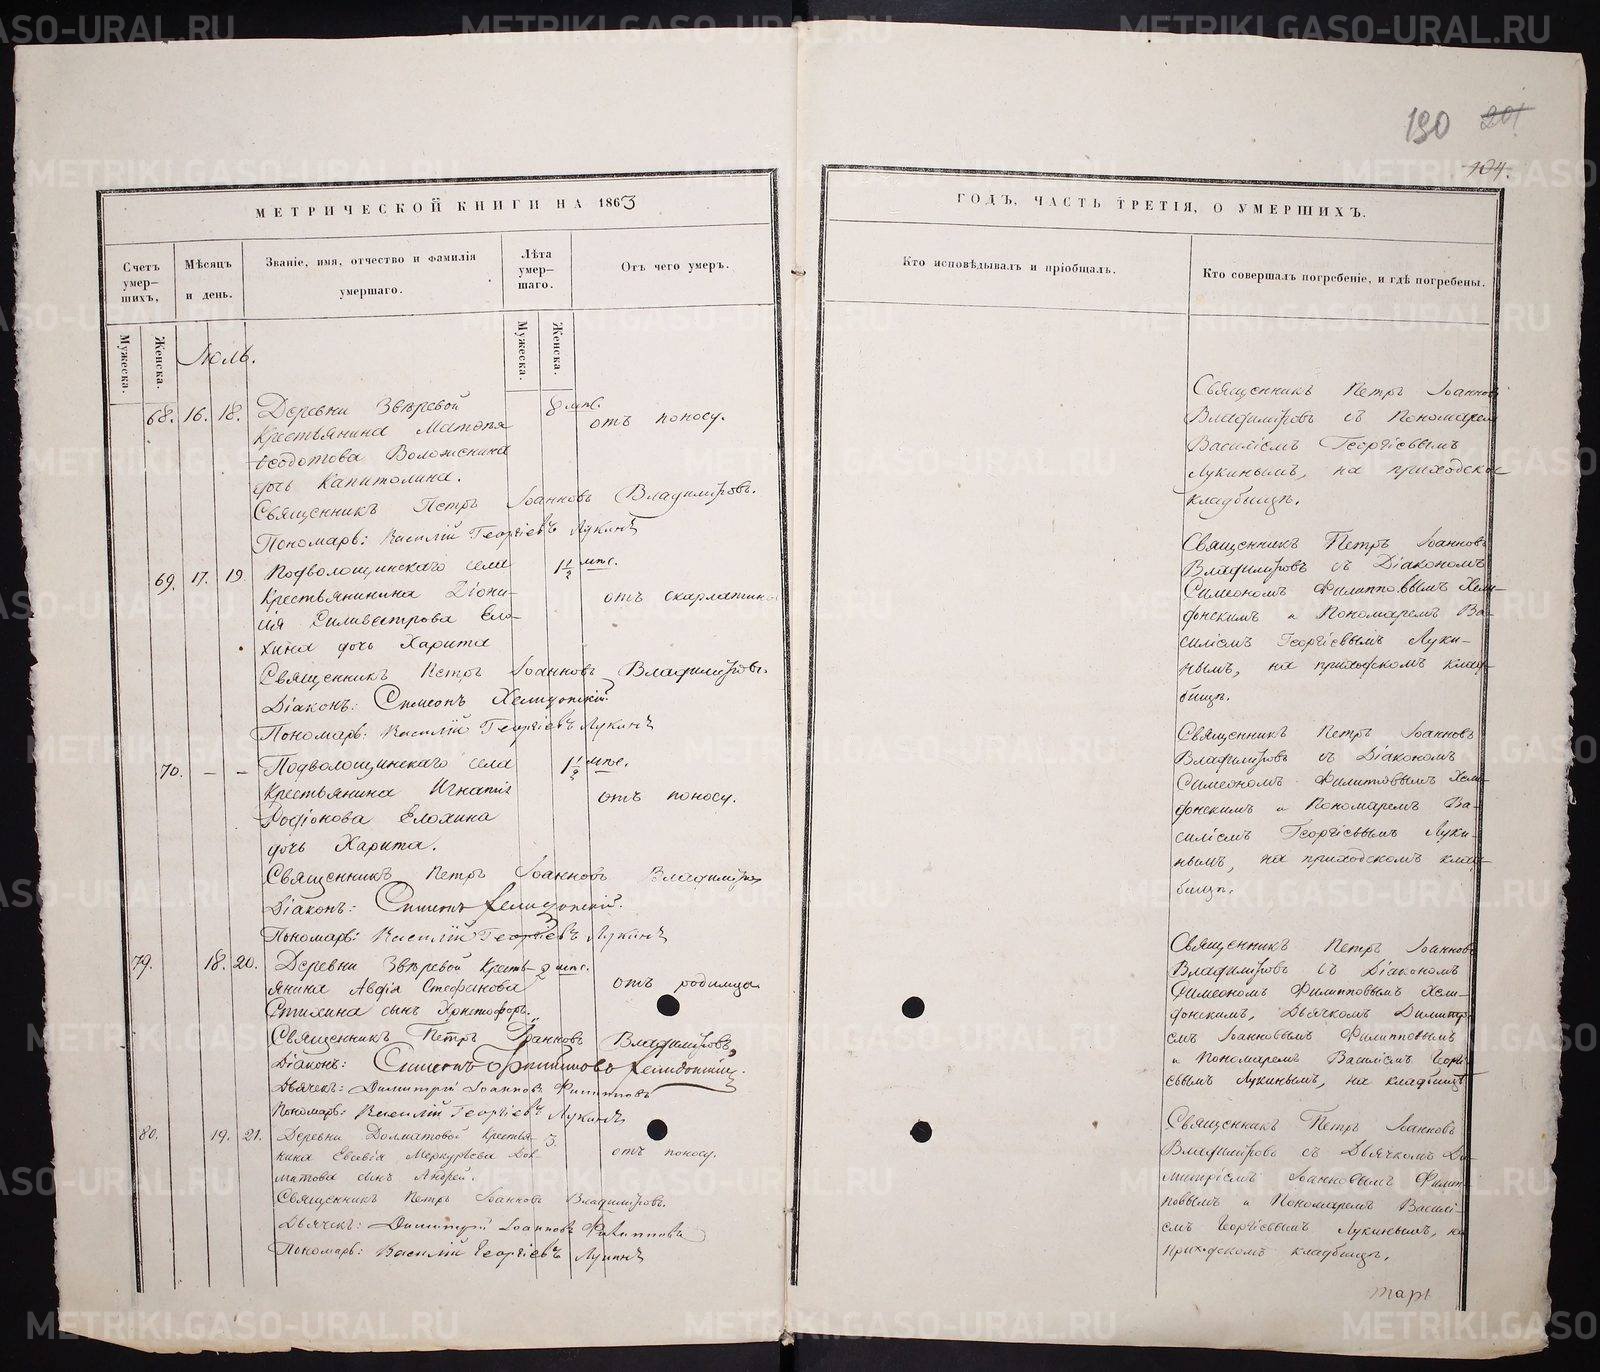 190 201
104.
МЕТРИЧЕСКОЙ КНИГИ НА 1863
ГОДЪ, ЧАСТЬ ТРЕТІЯ, О УМЕРШИХЪ.
Счетъ умер-шихъ,
Мѣсяцъ и день.
Званіе, имя, отчество и фамилія умершаго.
Лѣта умер-шаго.
Отъ чего умеръ.
Кто исповѣдывалъ и пріобщалъ.
Кто совершалъ погребеніе, и гдѣ погребены.
Мужеска.
Женска.
Мужеска.
Женска.
Іюль.
68. 16. 18. Деревни Звѣревой 8 мѣс.
Крестьянина отъ поносу.
Ѳеодотова Воложенина
дочь Капитолина.
Священникъ Петръ Іоанновъ Владиміровъ.
Пономарь: Василій Георгіевъ Лукинъ
Священникъ Петръ Іоанновъ
Владиміровъ съ Пономаремъ
Василіемъ Георгіевымъ
Лукинымъ, на приходскомъ
кладбищѣ.
69. 17. 19. Подволошинскаго села 1 1/2 мѣс.
Крестьянина Діони- отъ скарлатины
сія Силивестрова Ело-
хина дочь Харита
Священникъ Петръ Іоанновъ Владиміровъ.
Діаконъ: Симеонъ Хелидонскій
Пономарь: Василій Георгіевъ Лукинъ
Священникъ Петръ Іоанновъ
Владиміровъ съ Діакономъ
Симеономъ Филипповымъ Хели-
донскимъ и Пономаремъ Ва-
силіемъ Георгіевымъ Луки-
нымъ, на приходскомъ клад-
бищѣ.
70. — — Подволошинскаго села 1 1/2 мѣс.
Крестьянина Игнатія отъ поносу.
Родіонова Елохина
дочь Харита.
Священникъ Петръ Іоанновъ Владиміровъ
Діаконъ: Симеонъ Хелидонскій.
Пономарь: Василій Георгіевъ Лукинъ
Священникъ Петръ Іоанновъ
Владиміровъ съ Діакономъ
Симеономъ Филипповымъ Хели-
донскимъ и Пономаремъ Ва-
силіемъ Георгіевымъ Луки-
нымъ, на приходскомъ клад-
бищѣ.
79. 18. 20. Деревни Звѣревой Кресть- 2 мѣс.
янина Авдія Стефанова отъ родимца
сынъ Христофоръ.
Священникъ Петръ Іоанновъ Владиміровъ,
Діаконъ: Симеонъ Филипповъ Хелидонскій.
Дьячекъ: Димитрій Іоанновъ Филипповъ
Пономарь: Василій Георгіевъ Лукинъ
Священникъ Петръ Іоанновъ
Владиміровъ съ Діакономъ
Симеономъ Филипповымъ Хели-
донскимъ, Дьячкомъ Димитрі-
емъ Іоанновымъ Филипповымъ
и Пономаремъ Василіемъ Геор-
евымъ Лукинымъ, на кладбищѣ
80. 19. 21. Деревни Долматовой Крестья- 3.
нина Евсевія Меркурьева Дол- отъ поносу.
матова сынъ Андрей.
Священникъ Петръ Іоанновъ Владиміровъ.
Дьячекъ: Димитрій Іоанновъ Филипповъ
Пономарь: Василій Георгіевъ Лукинъ
Священникъ Петръ Іоанновъ
Владиміровъ съ Дьячкомъ Ди-
митріемъ Іоанновымъ Филип-
повымъ и Пономаремъ Василі-
емъ Георгіевымъ Лукинымъ, на
приходскомъ кладбищѣ.
тарь
METRIKI.GASO-URAL.RU